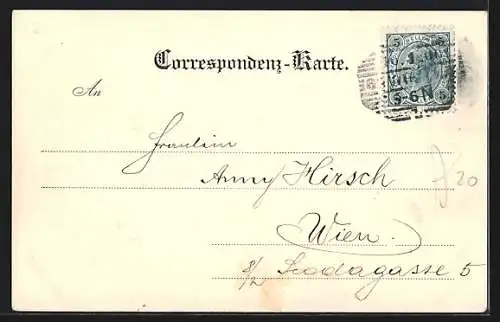 Correspondenz-Karte.
An
Fräulein
Anny Hirsch
Wien.
3/2 Skodagasse 5
20
5 5
5-6N